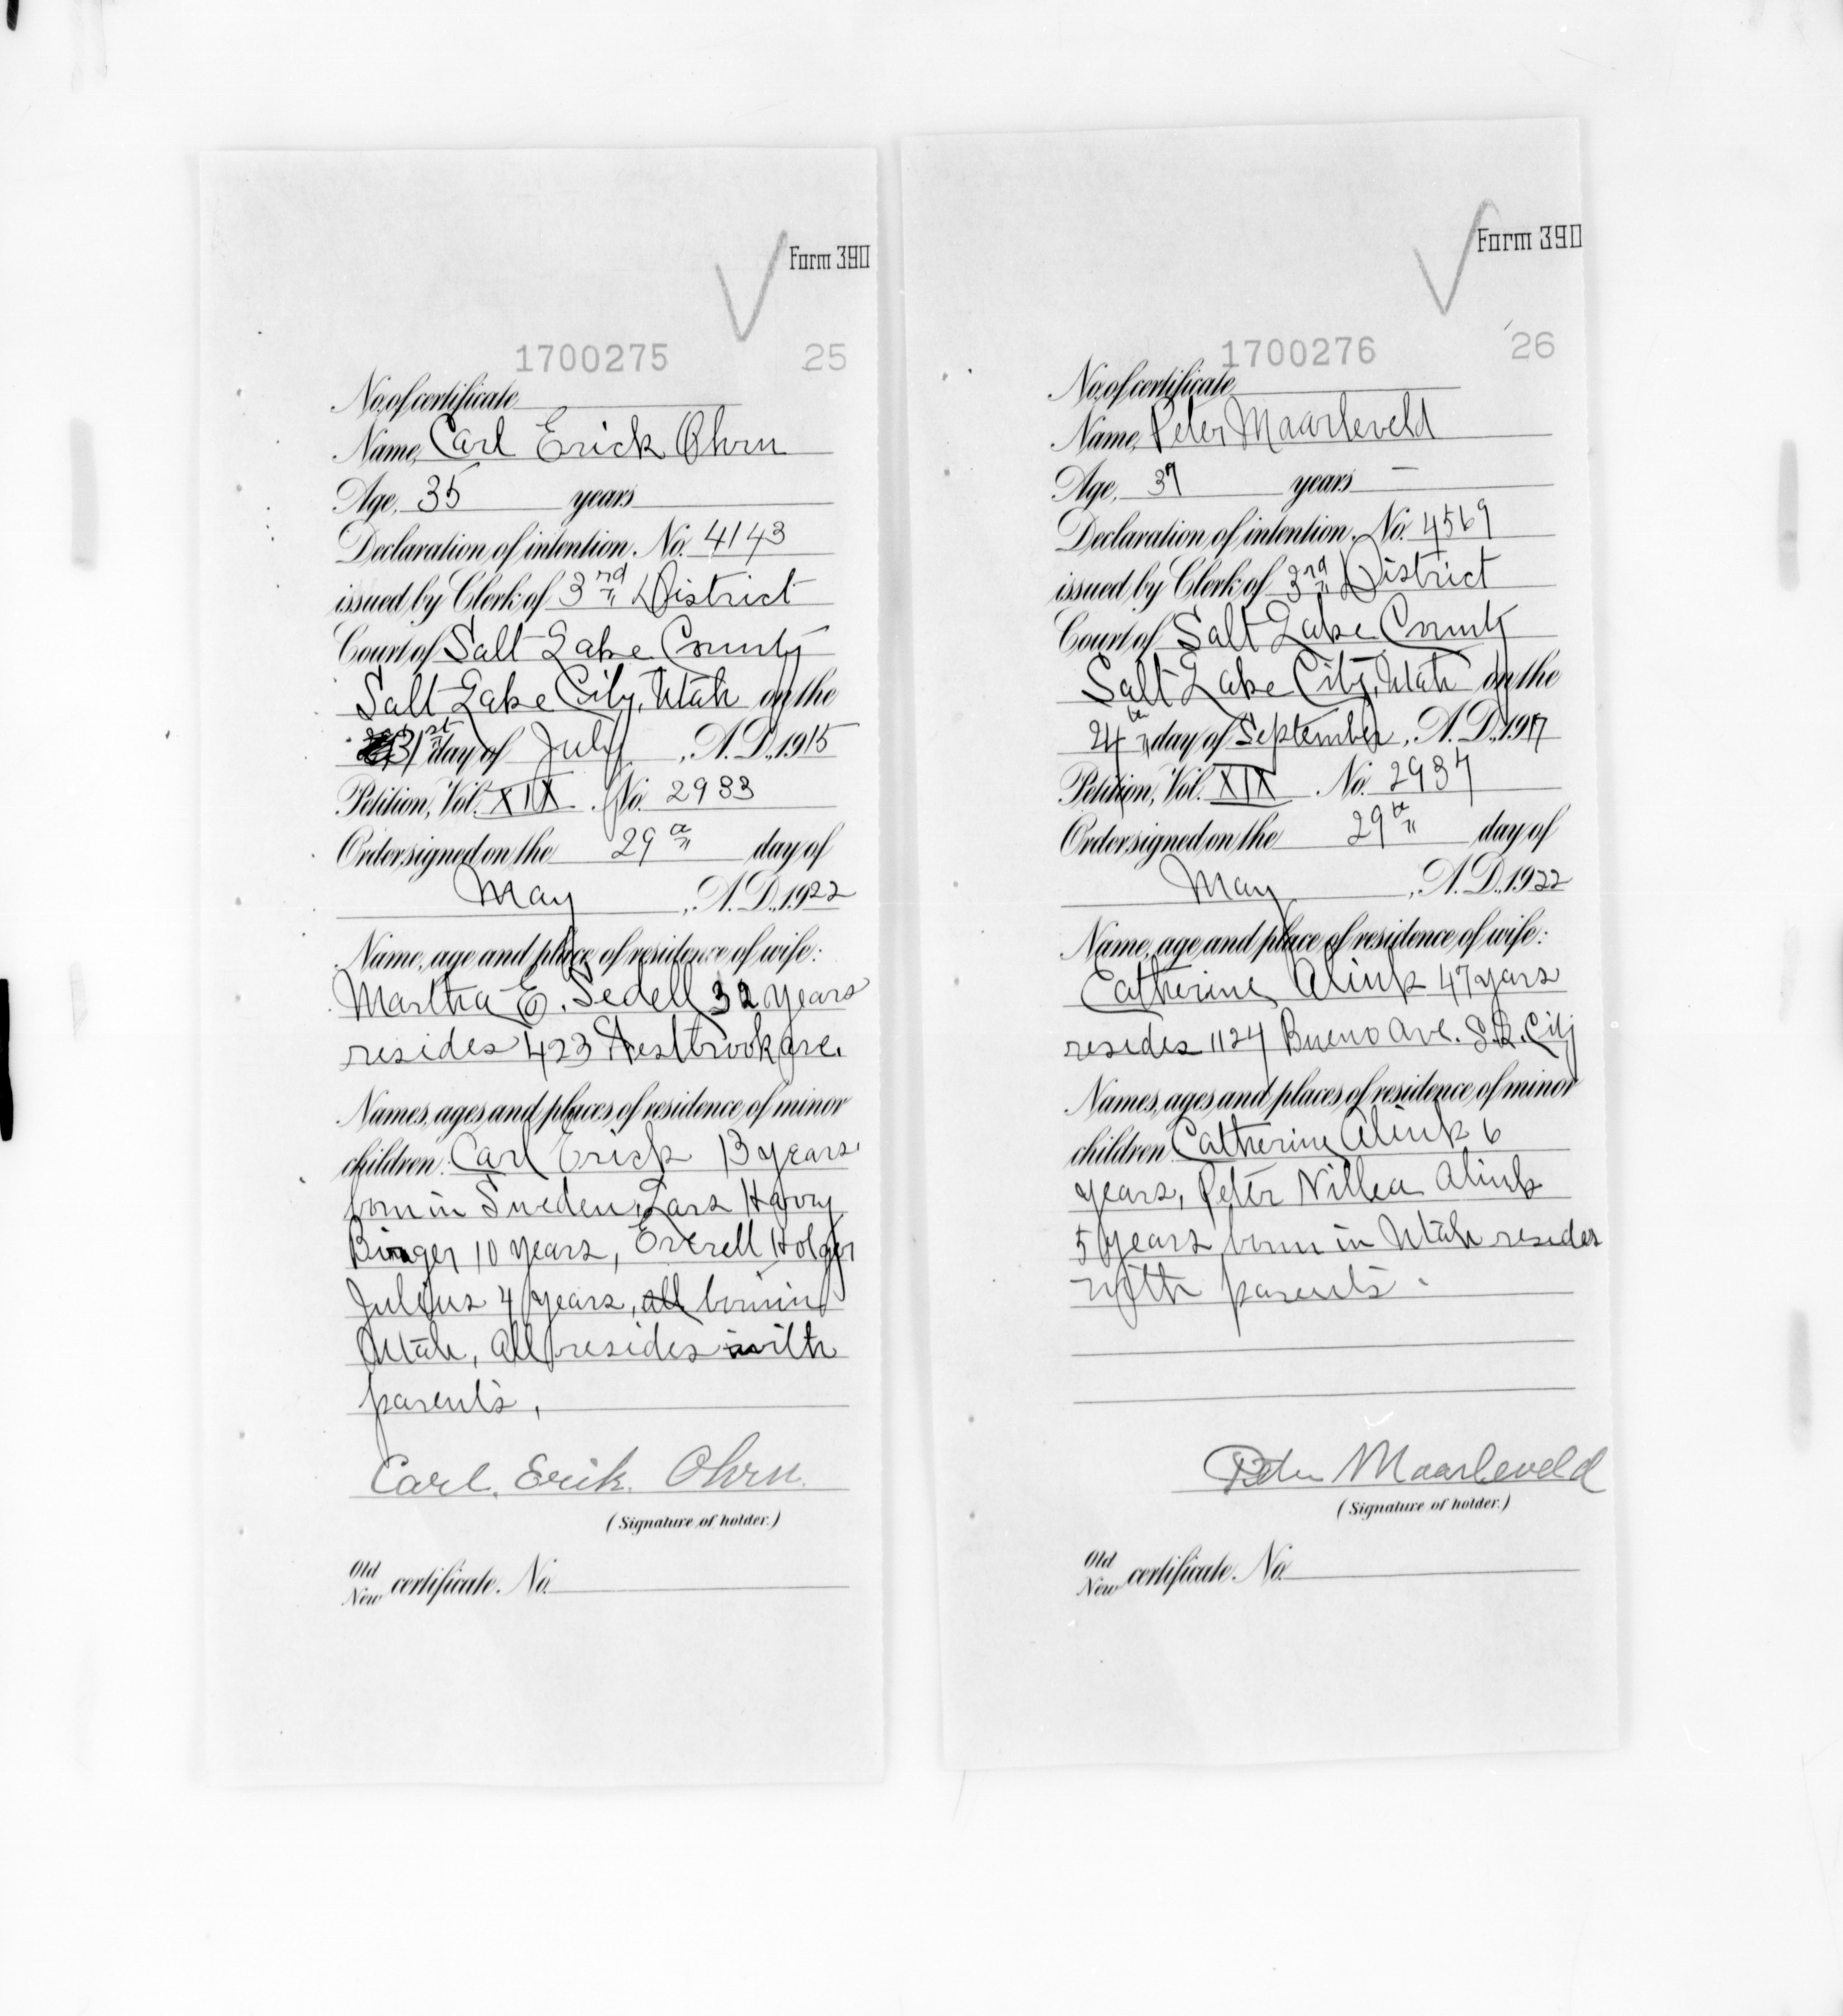 Form 390
1700275 25
No. of certificate
Name, Carl Erick Ohrn
Age, 35 years
Declaration of intention, No. 4143
issued by Clerk of 3rd District
Court of Salt Lake County
Salt Lake City, Utah on the
31st day of July, A.D., 1915
Petition, Vol. XIX No. 2933
Order signed on the 29th day of
May, A.D., 1922
Name, age and place of residence of wife:
Martha E. Sedell 32 years
resides 423 Westbrook ave.
Names, ages and places of residence of minor
children: Carl Erick 13 years
born in Sweden, Lars Harry
Birger 10 years, Everell Holger
Julius 4 years, all born in
Utah, all resides with
parents,
Carl. Erik. Ohrn.
(Signature of holder.)
Old
New certificate. No.
Form 390
1700276 26
No. of certificate
Name, Peter Maarleveld
Age, 37 years —
Declaration of intention, No. 4569
issued by Clerk of 3rd District
Court of Salt Lake County
Salt Lake City, Utah on the
24th day of September, A.D., 1917
Petition, Vol. XIX No. 2937
Order signed on the 29th day of
May, A.D., 1922
Name, age and place of residence of wife:
Catherine Alink 47 years
resides 1124 Bueno Ave. S.L. City
Names, ages and places of residence of minor
children Catherine Alink 6
years, Peter Alink
5 years born in Utah resides
with parents.
Peter Maarleveld
(Signature of holder.)
Old
New certificate. No.